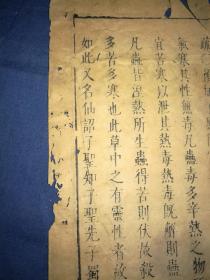 氣寒其性無毒凡蟲毒多辛熱之物
宜苦寒以泄其熱毒熱毒既解則蟲
凡蟲皆濕熱所生蟲得苦則伏故殺
多苦多寒也此草中之有靈性者故
如此又名仙認子聖知子聖先子蜀